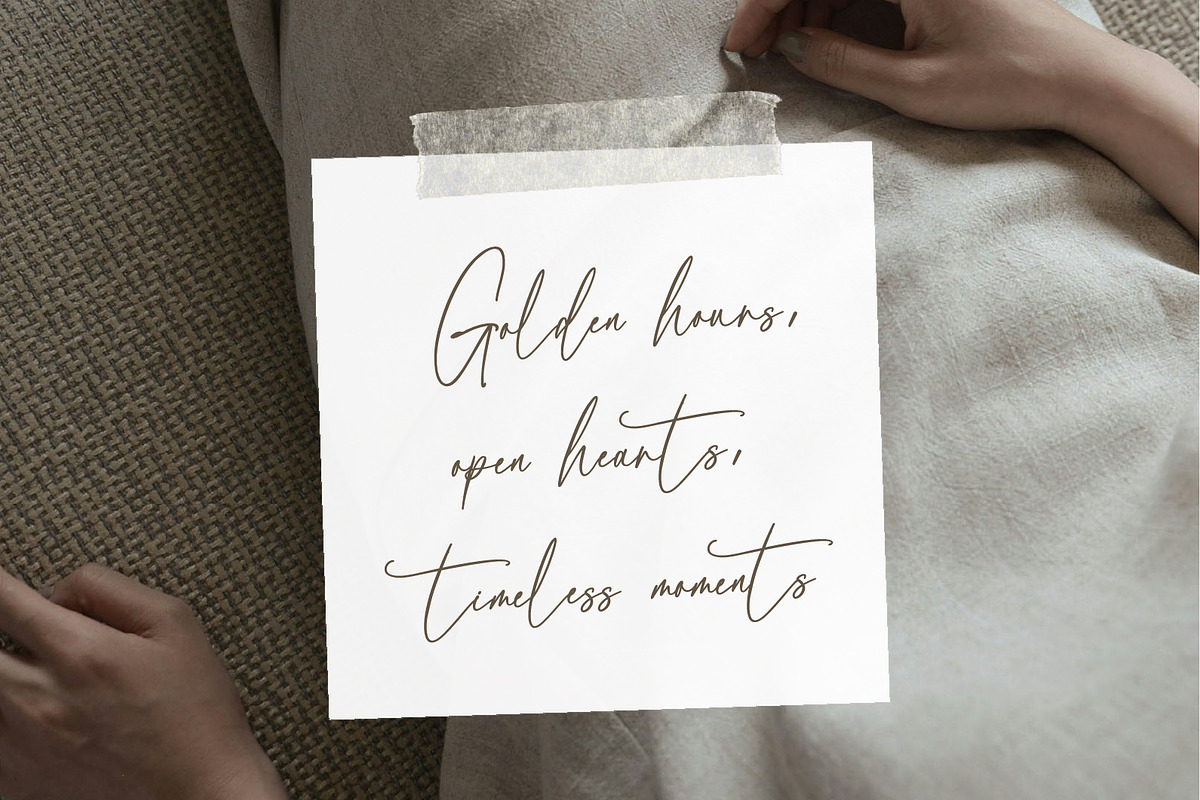 Golden hours,
open hearts,
timeless moments